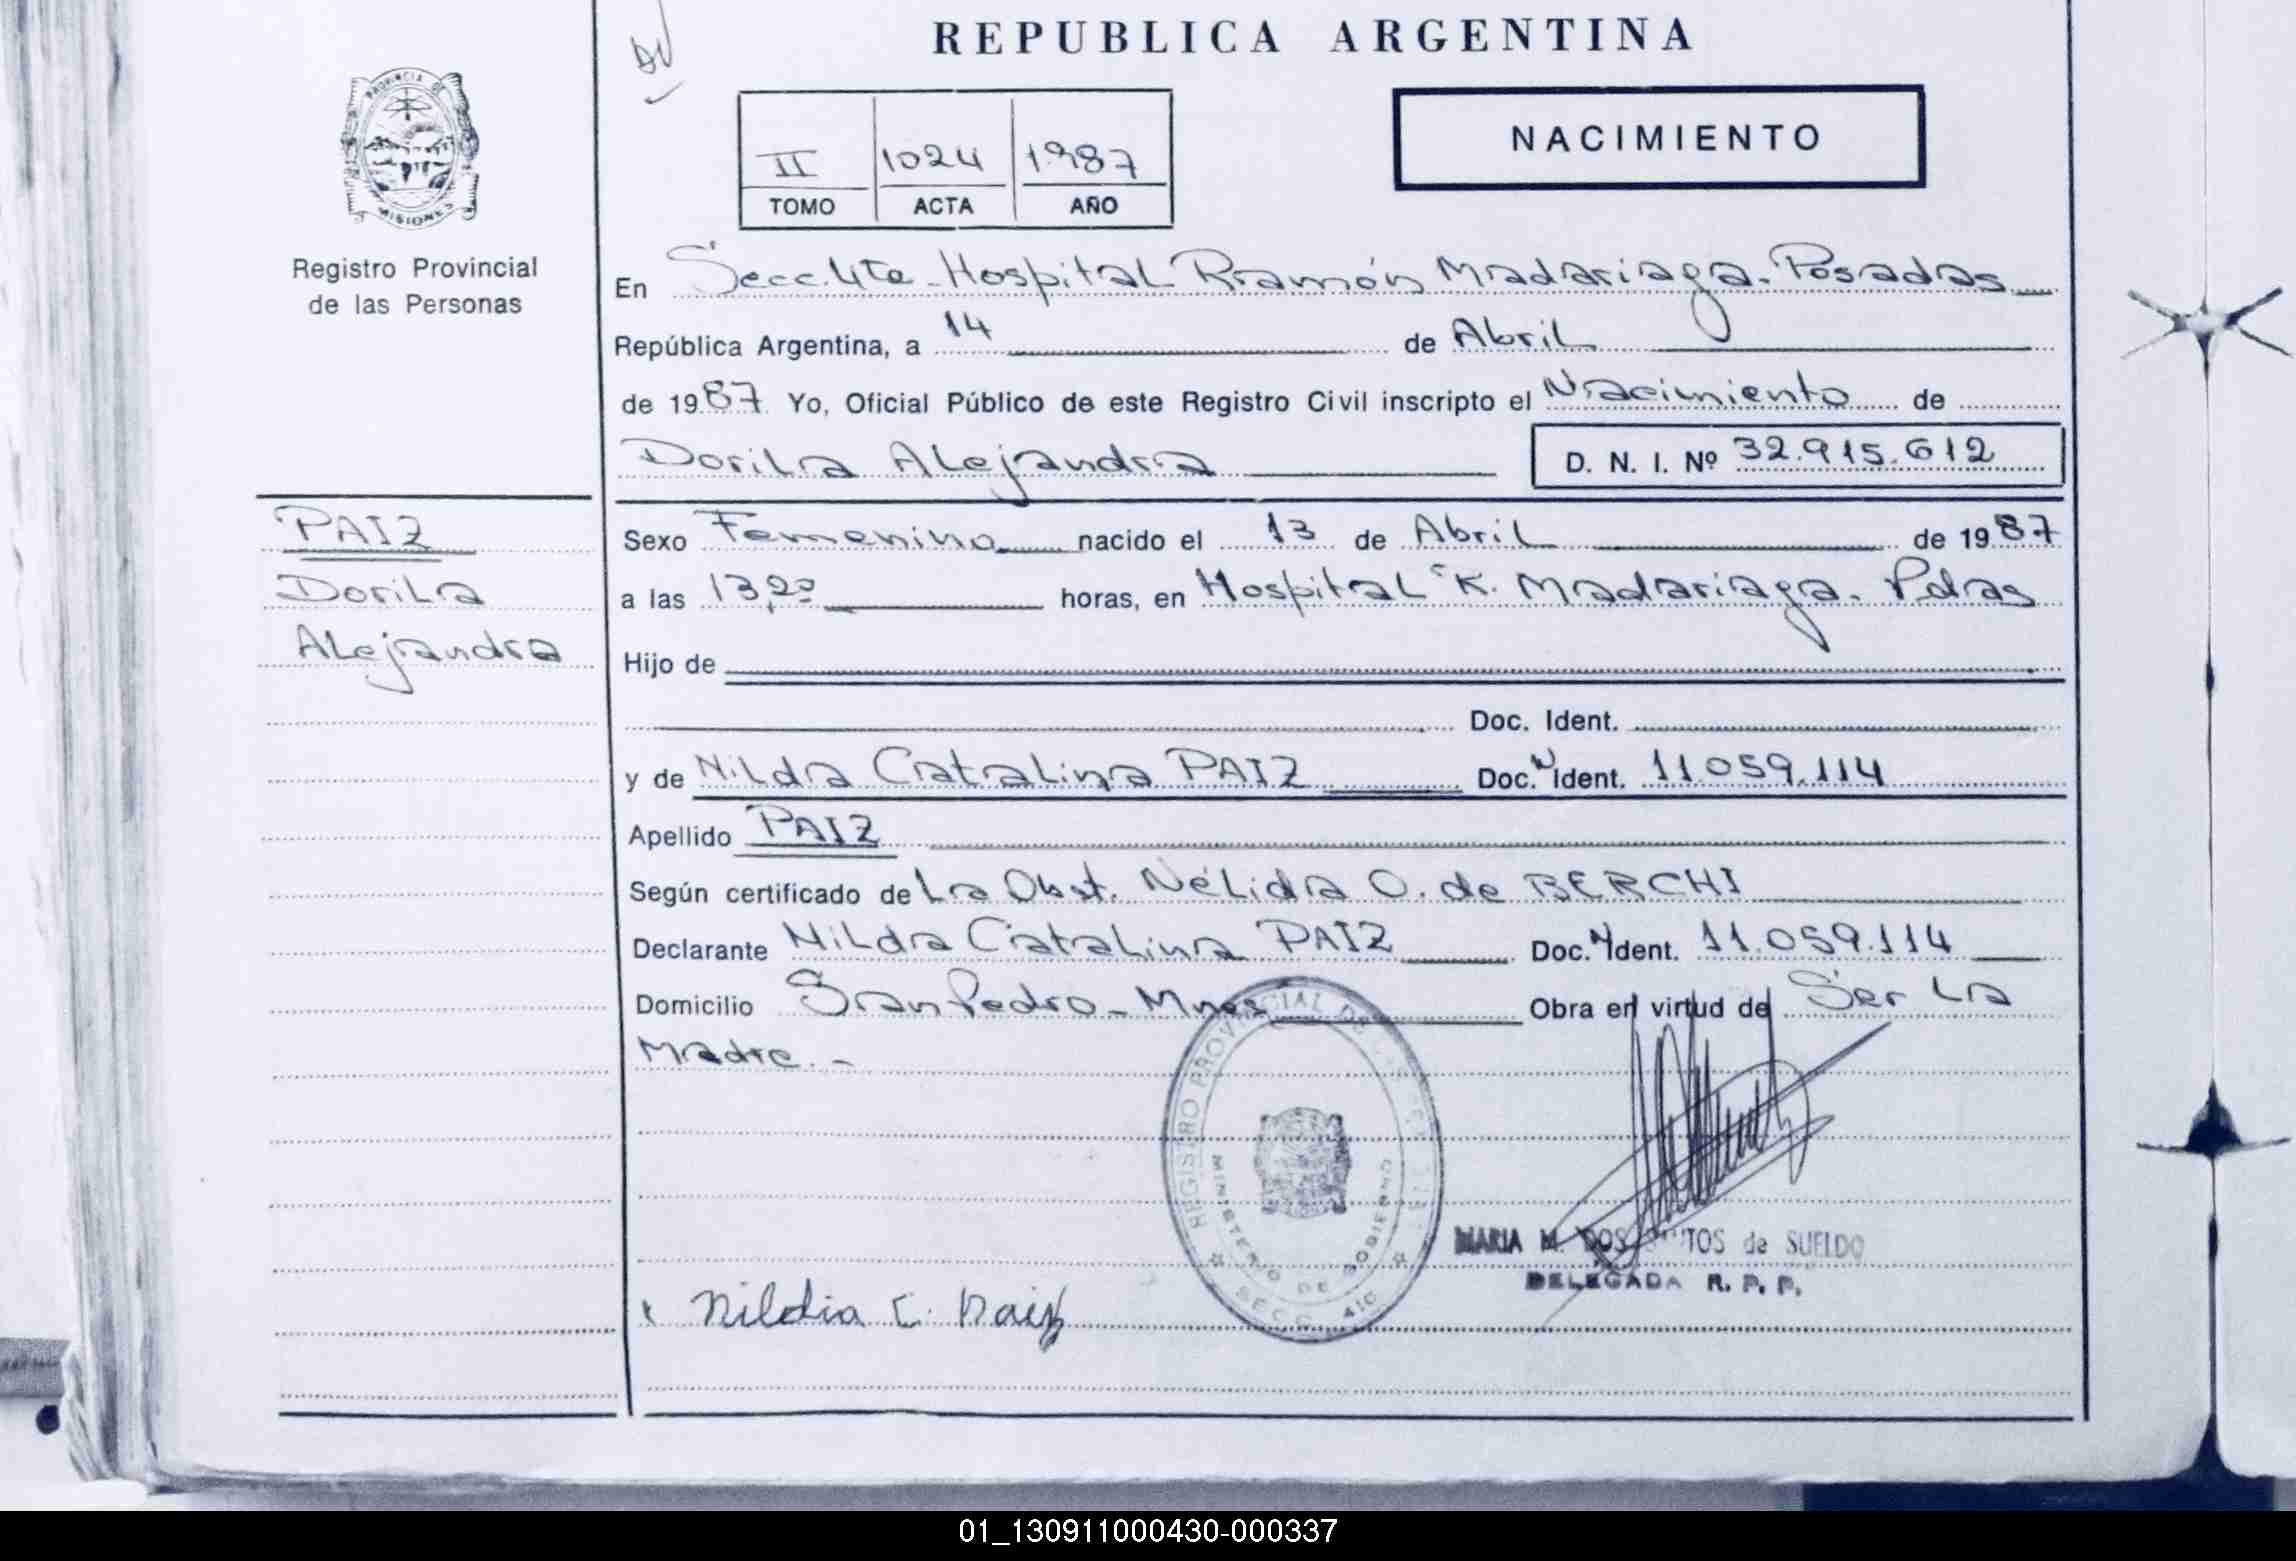 REPUBLICA ARGENTINA
PROVINCIA DE
MISIONES
Registro Provincial
de las Personas
II 1024 1987
TOMO ACTA AÑO
NACIMIENTO
En Secc. 4ta - Hospital Ramón Madariaga - Posadas
República Argentina, a 14 de Abril
de 1987 Yo, Oficial Público de este Registro Civil inscripto el Nacimiento de
Dorila Alejandra D. N. I. Nº 32.915.612
PAIZ
Dorila
Alejandra
Sexo Femenino nacido el 13 de Abril de 1987
a las 13,20 horas, en Hospital R. Madariaga - Pdas
Hijo de
Doc. Ident.
y de Nilda Catalina PAIZ Doc. Ident. 11.059.114
Apellido PAIZ
Según certificado de La Obst. Nélida O. de BERCHI
Declarante Nilda Catalina PAIZ Doc. Ident. 11.059.114
Domicilio San Pedro - Mnes Obra en virtud de Ser La
Madre.-
REGISTRO PROVINCIAL DE
MINISTERIO DE GOBIERNO
SECC.
MARIA M. DOS de SUELDO
DELEGADA R. P. P.
Nildia C. Paiz
01_130911000430-000337